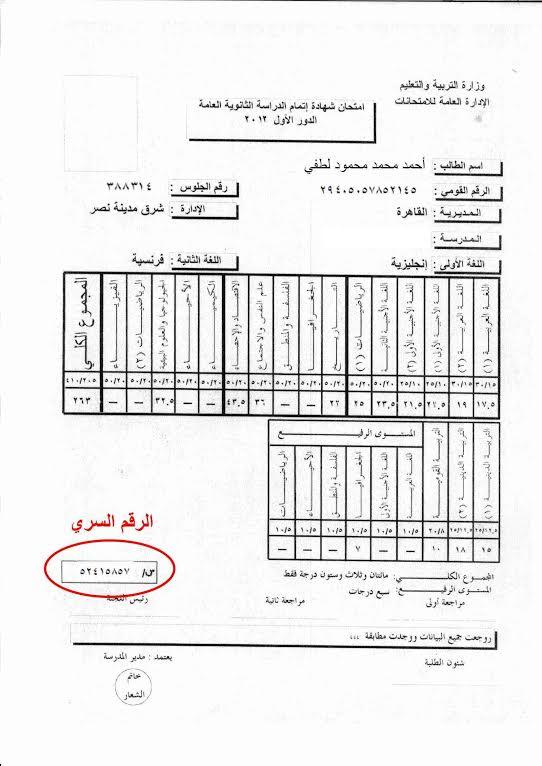 وزارة التربية والتعليم
الإدارة العامة للامتحانات
امتحان شهادة إتمام الدراسة الثانوية العامة
الدور الأول ٢٠١٢
اسم الطالب : أحمد محمد محمود لطفي
الرقم القومي : ٢٩٤٠٥٠٥٧٨٥٢١٤٥
رقم الجلوس : ٣٨٨٣١٤
المديرية : القاهرة
الإدارة : شرق مدينة نصر
المدرسة :
اللغة الأولى : إنجليزية
اللغة الثانية : فرنسية
اللغة العربية (١)
اللغة العربية (٢)
اللغة الأجنبية الأولى (١)
اللغة الأجنبية الأولى (٢)
اللغة الأجنبية الثانية
الرياضيات (١)
التاريخ
الجغرافيا
الفلسفة والمنطق
علم النفس والاجتماع
الاقتصاد والإحصاء
الكيمياء
الأحياء
الجيولوجيا والعلوم البيئية
الرياضيات (٢)
الفيزياء
المجموع الكلي
٣٠/١٥ ٣٠/١٥ ٢٥/١٠ ٢٥/١٠ ٥٠/٢٠ ٥٠/٢٠ ٥٠/٢٠ ٥٠/٢٠ ٥٠/٢٠ ٥٠/٢٠ ٥٠/٢٠ ٥٠/٢٠ ٥٠/٢٠ ٥٠/٢٠ ٥٠/٢٠ ٥٠/٢٠ ٤١٠/٢٠٥
١٧.٥ ١٩ ٢١.٥ ٢٣.٥ ٢٥ ٢٢ — — ٣٦ ٤٣.٥ — — ٣٢.٥ — — ٢٦٣
التربية الدينية (١)
التربية الدينية (٢)
التربية القومية
المستوى الرفيع
اللغة العربية
اللغة الأجنبية الأولى
الجغرافيا
الفلسفة والمنطق
الأحياء
الرياضيات
٢٠/٨ ١٠/٥ ١٠/٥ ١٠/٥ ١٠/٥ ١٠/٥ ١٠/٥
١٥ ١٨ ١٠ — — ٧ — — —
الرقم السري
س/ ٥٢٤١٥٨٥٧
المجموع الكلي: مائتان وثلاث وستون درجة فقط
المستوى الرفيع: سبع درجات
مراجعة أولى
مراجعة ثانية
رئيس اللجنة
روجعت جميع البيانات ووجدت مطابقة ،،،
شئون الطلبة
يعتمد : مدير المدرسة
خاتم
الشعار